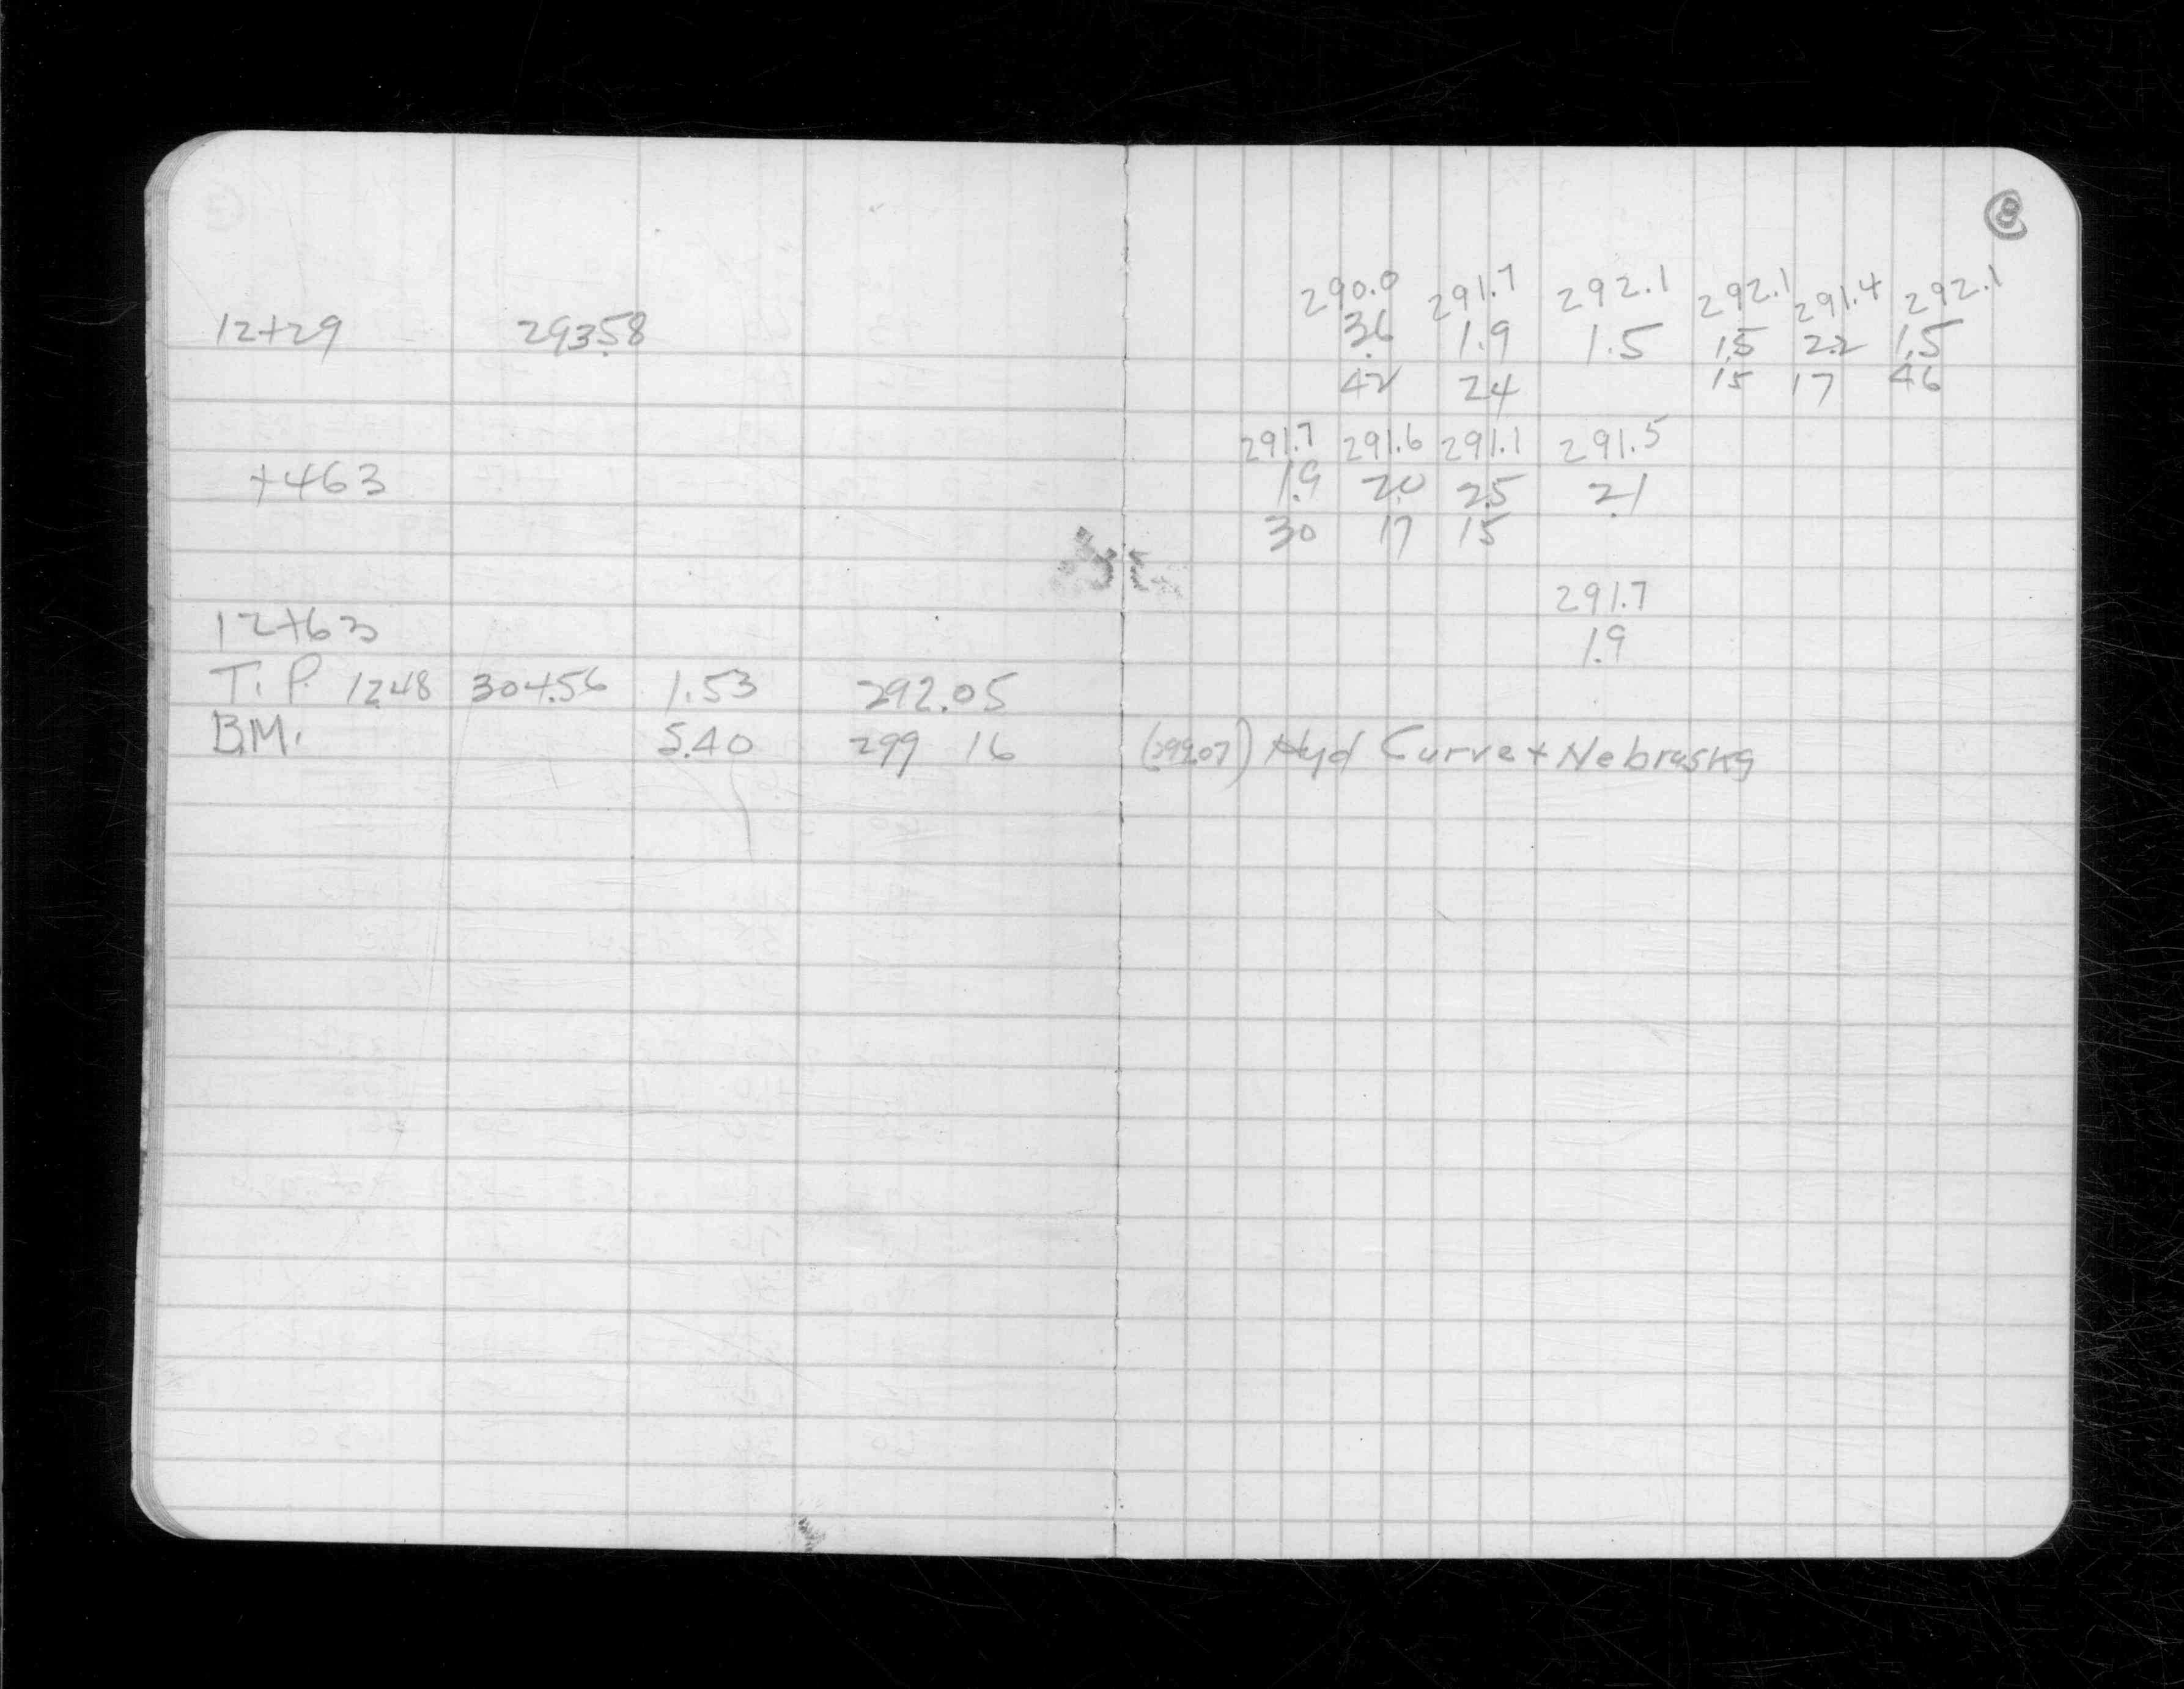 8
290.0 291.7 292.1 292.1 291.4 292.1
12+29 293.58 3.6 1.9 1.5 1.5 2.2 1.5
42 24 15 17 46
291.7 291.6 291.1 291.5
+463 1.9 2.0 2.5 2.1
30 17 15
291.7
12+63 1.9
T.P. 12.48 304.56 1.53 292.05
B.M. 5.40 299 16 (299.07) Hyd Curve + Nebraska